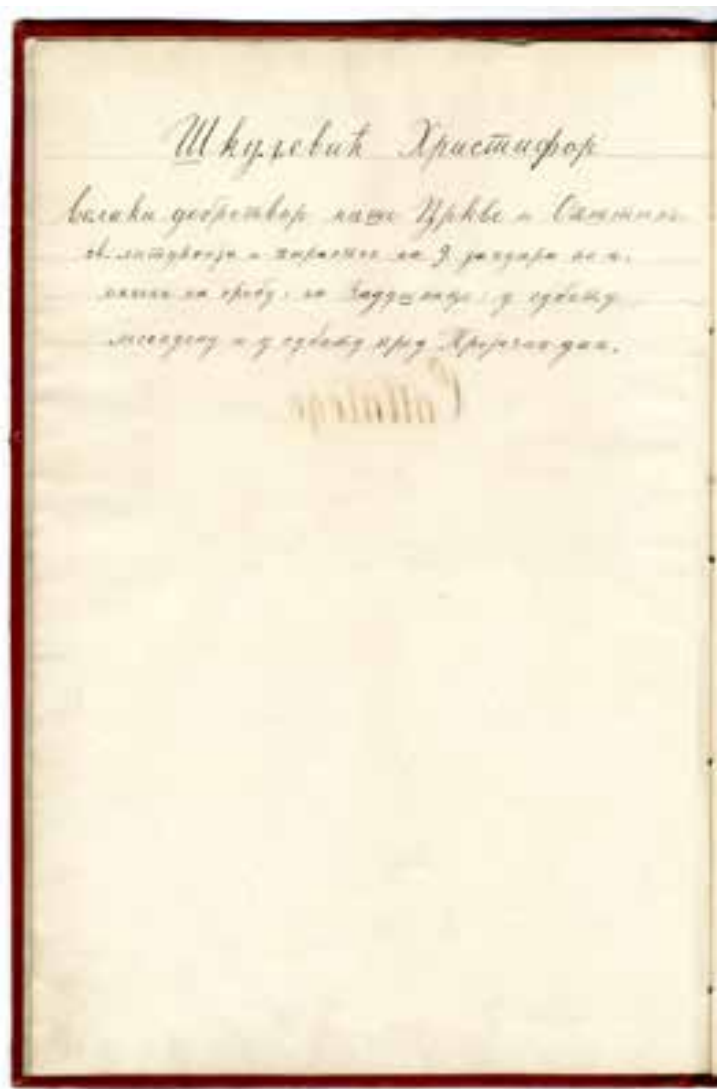 Шкуљевић Христифор
велики добротвор наше Цркве и Општине
св. литургија и парастос на 9. јануара по н.
на гробу, на Задушнице: у суботу
и у суботу пред Тројичин дан.